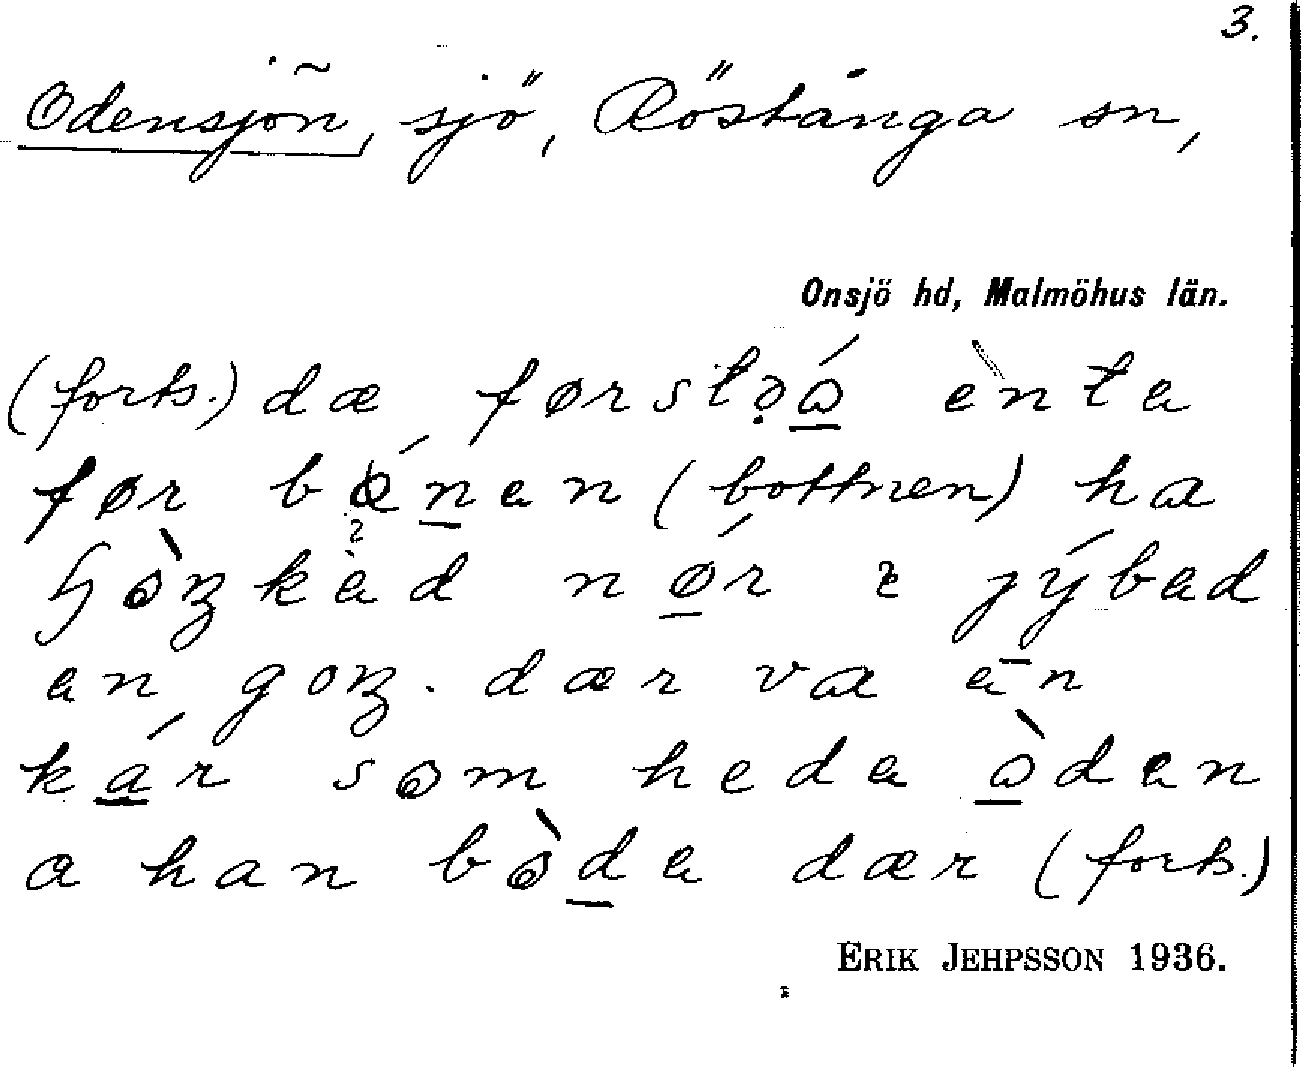 3.
Odensjön, sjö, Röstånga sn,
Onsjö hd, Malmöhus län.
(forts.) dæ førstǫ́ɷ ènta
før bǿnen (bottnen) ha
hɷ̀ʒkad nør ı jýbad
an goʒ. dær va en
kár sɷm heda ɷ̀dɐn
a han bɷ̀da dær (forts.)
ERIK JEHPSSON 1936.